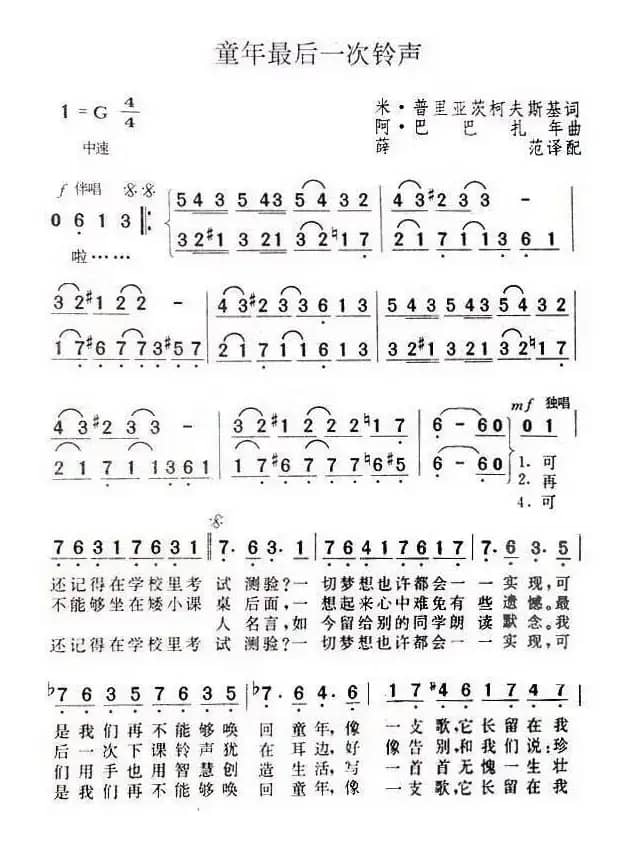 童年最后一次铃声
1=G 4/4
中速
米·普里亚茨柯夫斯基词
阿·巴巴扎年曲
薛范译配
f 伴唱
0 6 1 3
啦……
5 4 3 5 4 3 5 4 3 2
4 3 #2 3 -
3 2 #1 3 2 1 3 2 ♮1 7
2 1 7 1 1 3 6 1
3 2 #1 2 2 -
4 3 #2 3 3 6 1 3
5 4 3 5 4 3 5 4 3 2
1 7 #6 7 7 3 #5 7
2 1 7 1 1 6 1 3
3 2 #1 3 2 1 3 2 ♮1 7
4 3 #2 3 3 -
3 2 #1 2 2 2 ♮1 7
6 - 6 0
mf 独唱
0 1
2 1 7 1 1 3 6 1
1 7 #6 7 7 7 ♮6 #5
6 - 6 0
1. 可
2. 再
4. 可
7 6 3 1 7 6 3 1 7. 6 3. 1 7 6 4 1 7 6 4 1 7. 6 3. 5
还记得在学校里考试测验?一切梦想也许都会一一实现,可
不能够坐在矮小课桌后面,一想起来心中难免有些遗憾。最
人名言,如今留给别的同学朗读默念。我
还记得在学校里考试测验?一切梦想也许都会一一实现,可
♭7 6 3 5 7 6 3 5 ♭7. 6 4. 6 1 7 #4 6 1 7 4 7
是我们再不能够唤回童年,像一支歌,它长留在我
后一次下课铃声犹在耳边,好像告别,和我们说:珍
们用手也用智慧创造生活,写一首首无愧一生壮
是我们再不能够唤回童年,像一支歌,它长留在我